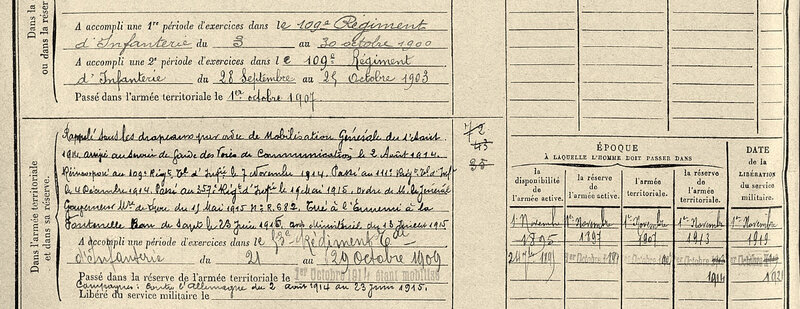 Dans la
ou dans la réser
A accompli une 1re période d'exercices dans le 109e Régiment
d'Infanterie du 3 au 30 octobre 1900
A accompli une 2e période d'exercices dans le 109e Régiment
d'Infanterie du 28 Septembre au 25 Octobre 1903
Passé dans l'armée territoriale le 1er octobre 1907.
Dans l'armée territoriale
et dans sa réserve.
Rappelé sous les drapeaux par ordre de Mobilisation Générale du 1er Août
1914 arrivé au Service de Garde des Voies de Communication le 2 Août 1914.
Réincorporé au 109e Rég. Tal d'Infie le 7 novembre 1914. Passé au 111e Rég. Tal d'Inf
le 4 Décembre 1914. Passé au 357e Rég. d'Infie le 19 Mai 1915. Ordre de M. le Général
Gouverneur Mre de du 15 Mai 1915 No 2.682. Tué à l'Ennemi à la
Fontenelle Ban de Sapt le 23 Juin 1915. avis ministériel du Juin 1915
A accompli une période d'exercices dans le 53e Régiment Tal
d'Infanterie du 21 au 29 Octobre 1909
Passé dans la réserve de l'armée territoriale le 1er Octobre 1914 étant mobilisé
Campagnes: contre l'Allemagne du 2 août 1914 au 23 juin 1915.
Libéré du service militaire le
72
43
35
ÉPOQUE
À LAQUELLE L'HOMME DOIT PASSER DANS
DATE
DE LA
LIBÉRATION
du service
militaire.
la disponibilité
de l'armée active.
la réserve
de l'armée active.
l'armée
territoriale.
la réserve
de l'armée
territoriale.
1er Novembre 1895
1er Novembre 1897
1er Novembre 1907
1er Novembre 1913
1er Novembre 1919
24 1897
1er Octobre
1er Octobre
1er Octobre 1914
1er Octobre